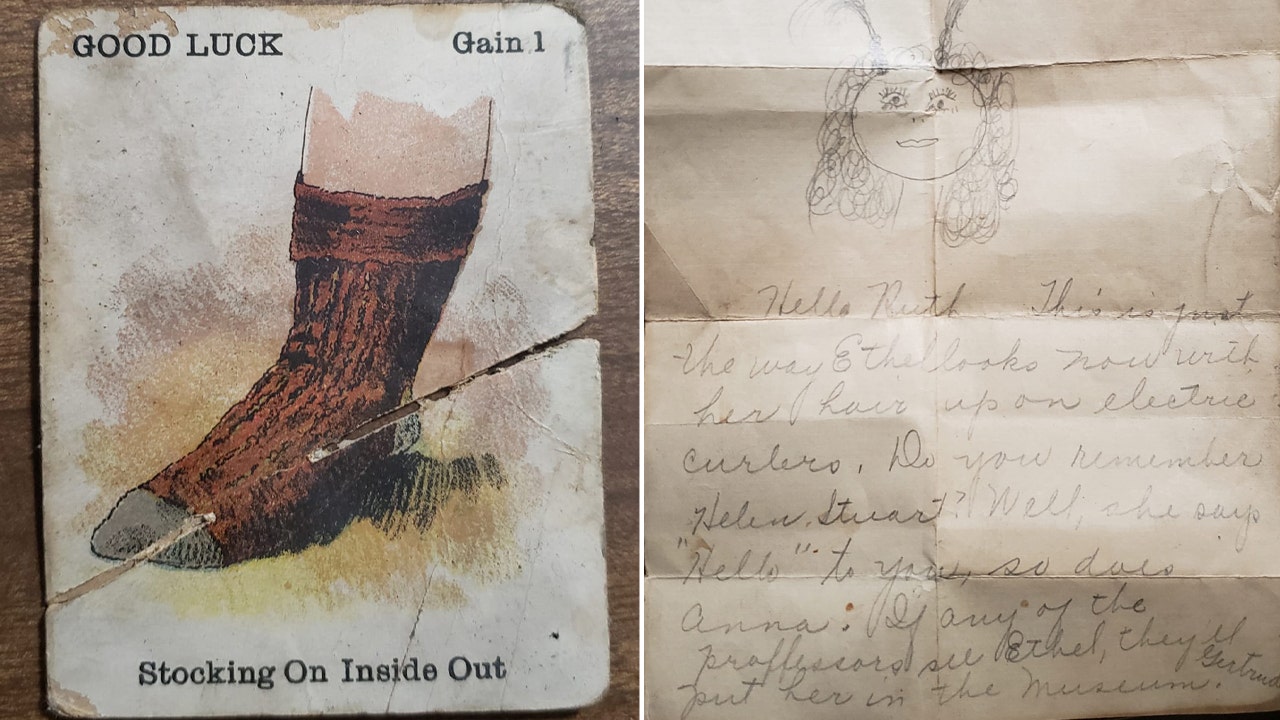 GOOD LUCK Gain 1
Stocking On Inside Out
Hello Ruth This is just
the way Ethel looks now with
her hair up on electric
curlers. Do you remember
Helen Stuart? Well, she says
"Hello" to you, so does
Anna. If any of the
proffessors see Ethel, they'll
put her in the museum.